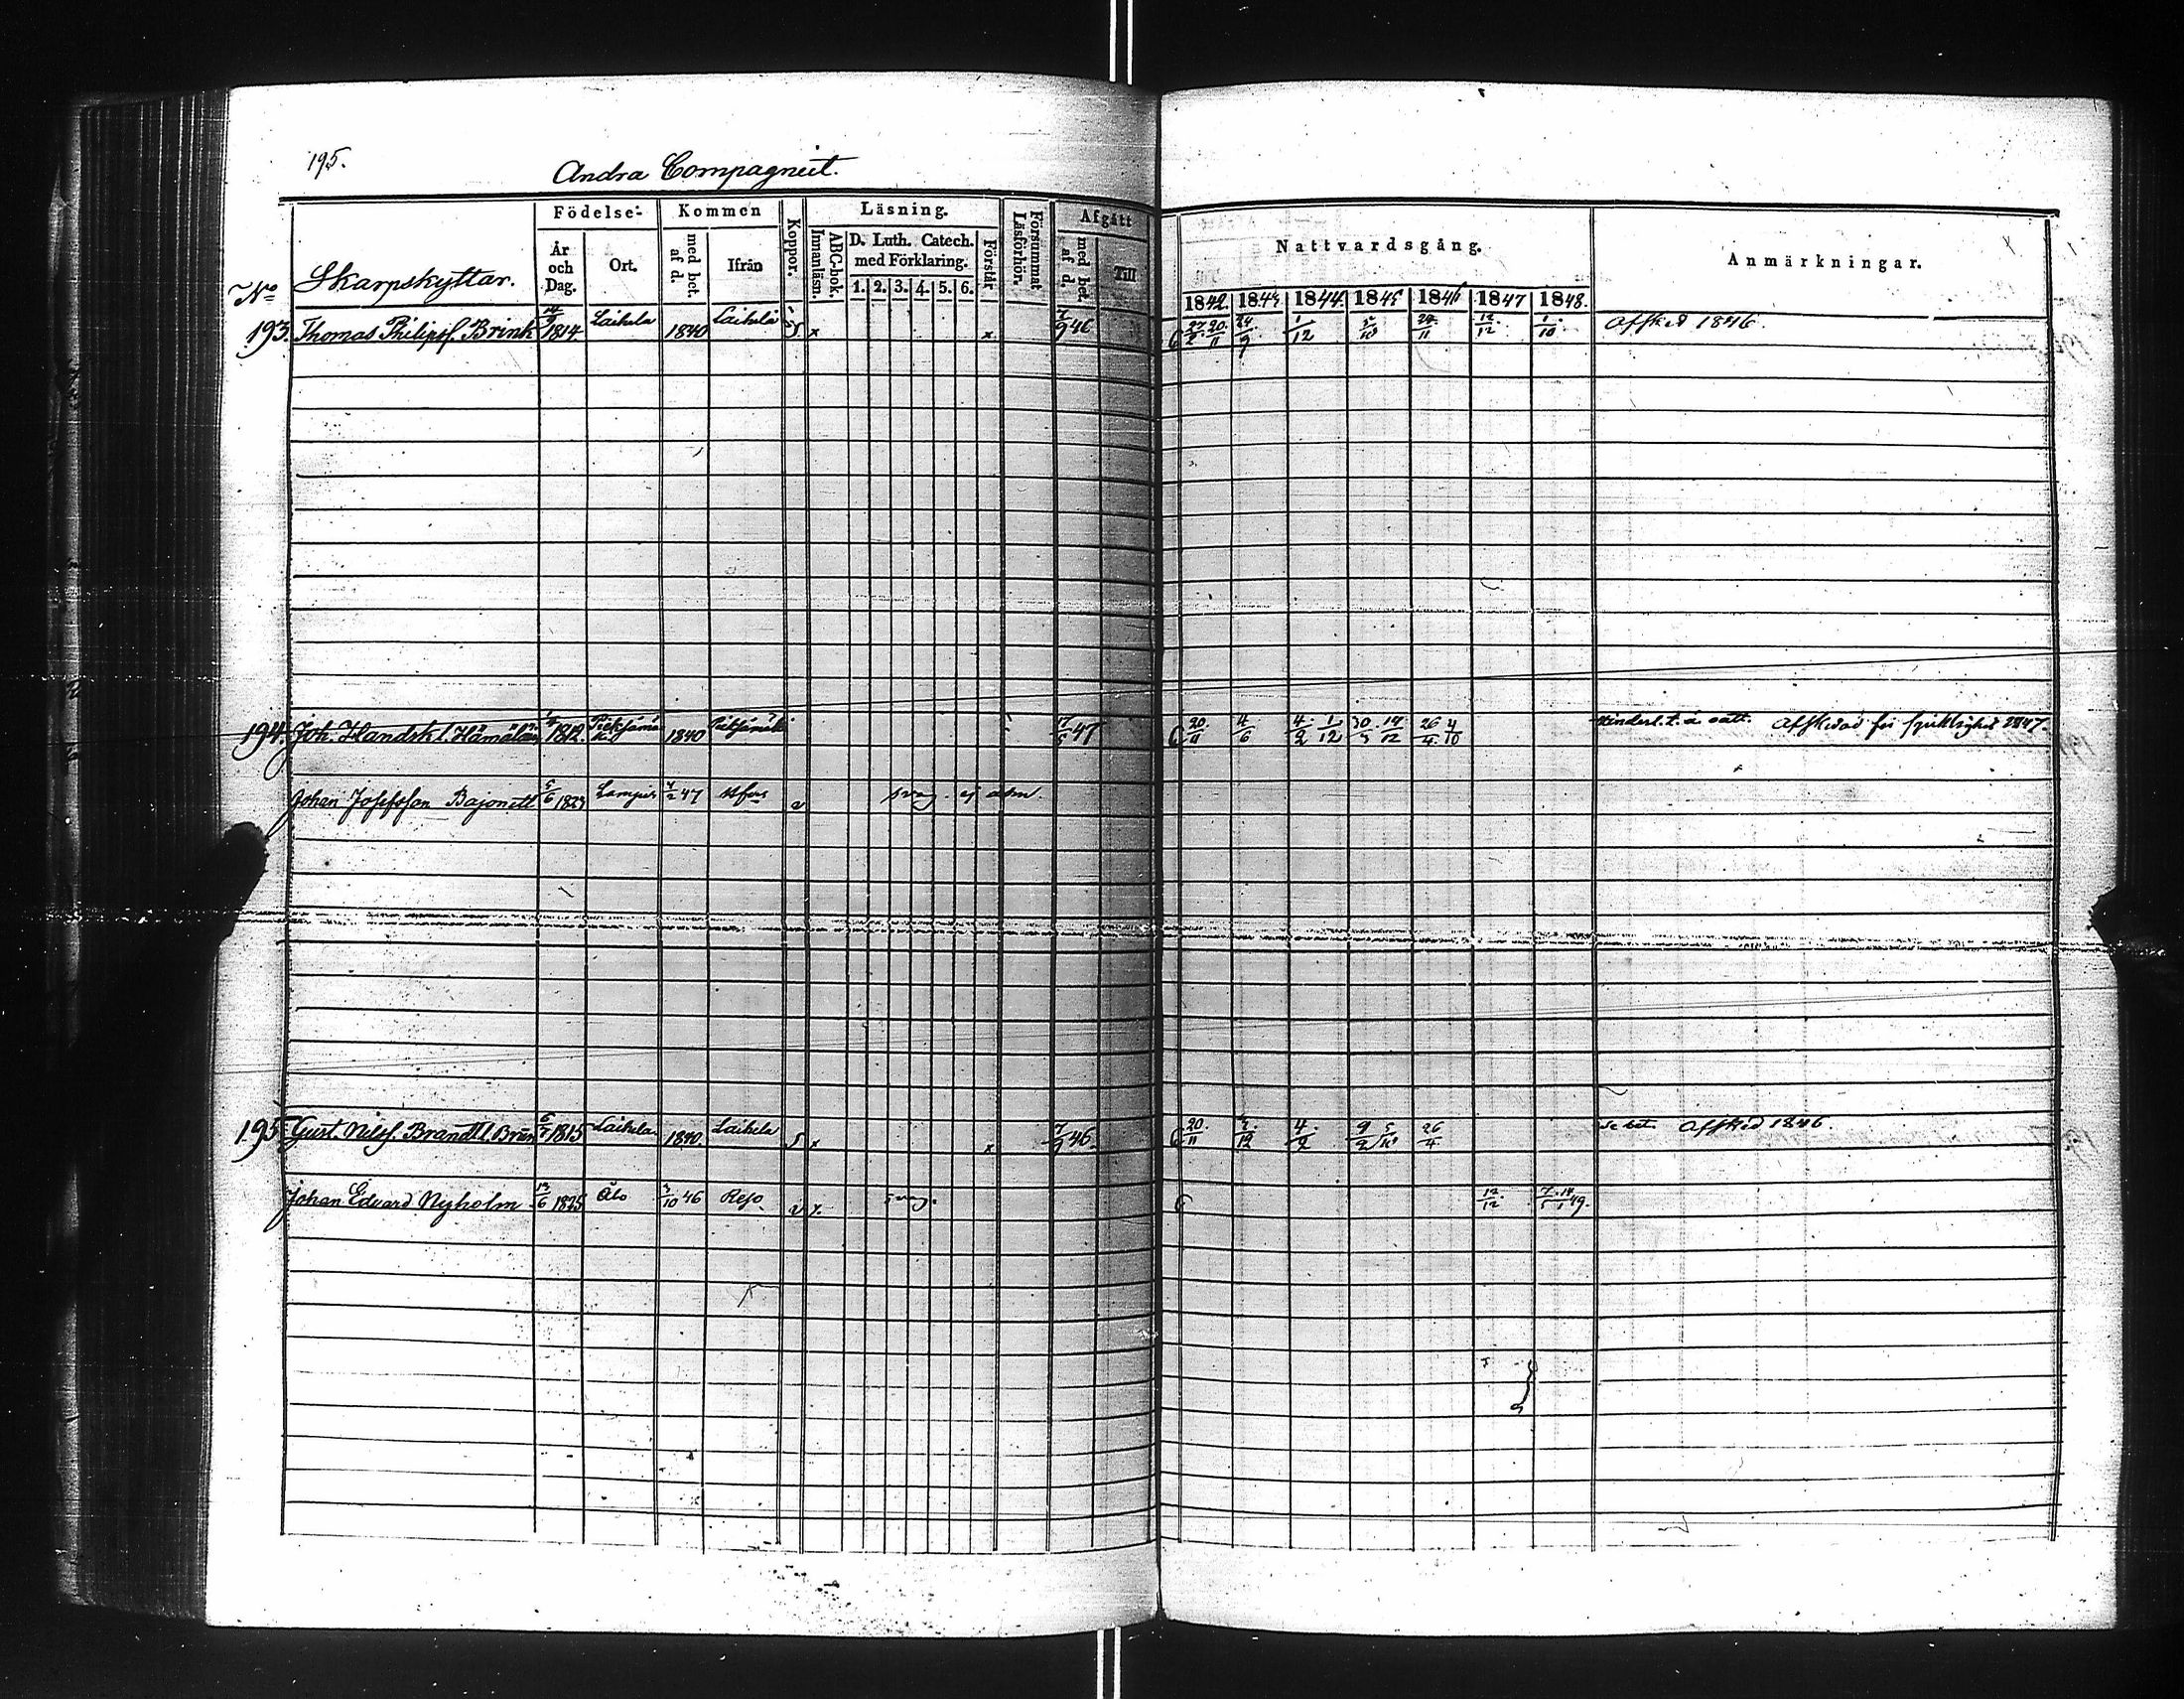 195.
Andra Compagniet.
No
Skarpskyttar.
Födelse-
År och Dag.
Ort.
Kommen
med bet. af d.
Ifrån
Koppor.
Läsning.
Innanläsn.
ABC-bok.
D. Luth. Catech. med Förklaring.
1. 2. 3. 4. 5. 6.
Förstår
Försummat Läsförhör.
Afgått
med bet. af d.
Till
Nattvardsgång.
1842. 1843. 1844. 1845 1846 1847 1848.
Anmärkningar.
193. Thomas Philipsf. Brink 14/9 1814. Laihela 1840 Laihela x x 7/9 46 6 20/11 24/9 1/12 5/10 11 12/12 1/10 Afsked 1846.
194. Joh. Handsk l. Hämäläin 1812. 1840 7/5 47 6 20/11 4/6 4/2 1/12 30/3 14/12 26/4 4/10 Afskedad för 1847.
Johan Josefsson Bajonett 5/6 1823 Lampis 4/2 47 Hfors v svag. ej adm.
195. Gust. Nilsf. Brandt l. Brun 1815 Laihela 1840. Laihela x x 7/9 46. 6 20/11 12 4/2 9/2 5/10 26/4 Afsked 1846.
Johan Edvard Nyholm 13/6 1825 Åbo 3/10 46 Reso v x. svag. 6 12/12 7/5 14/1 49.